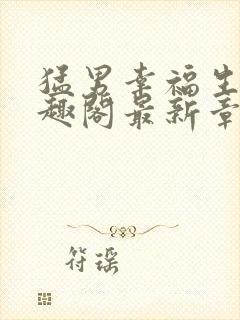 猛男幸福生
趣阁最新章
符瑶